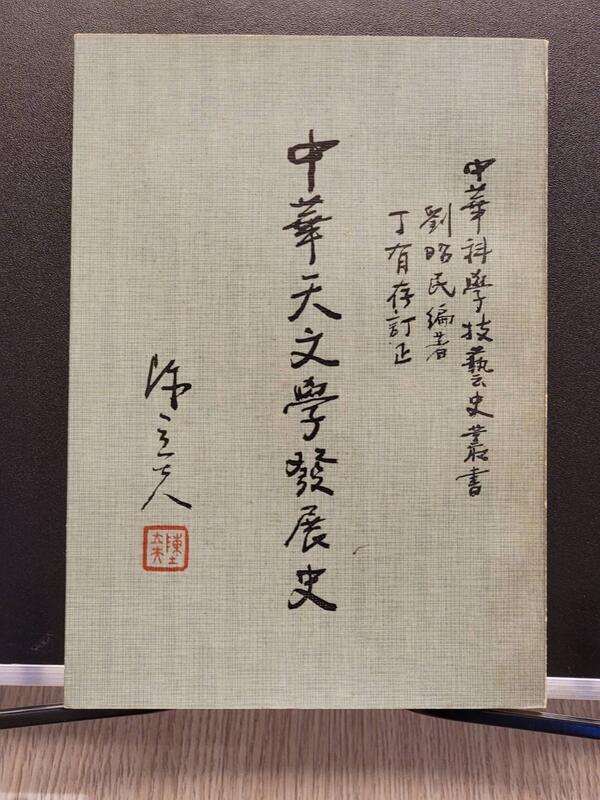 中華科學技藝史叢書
劉昭民編著
丁有存訂正
中華天文學發展史
陳立夫
陳立夫